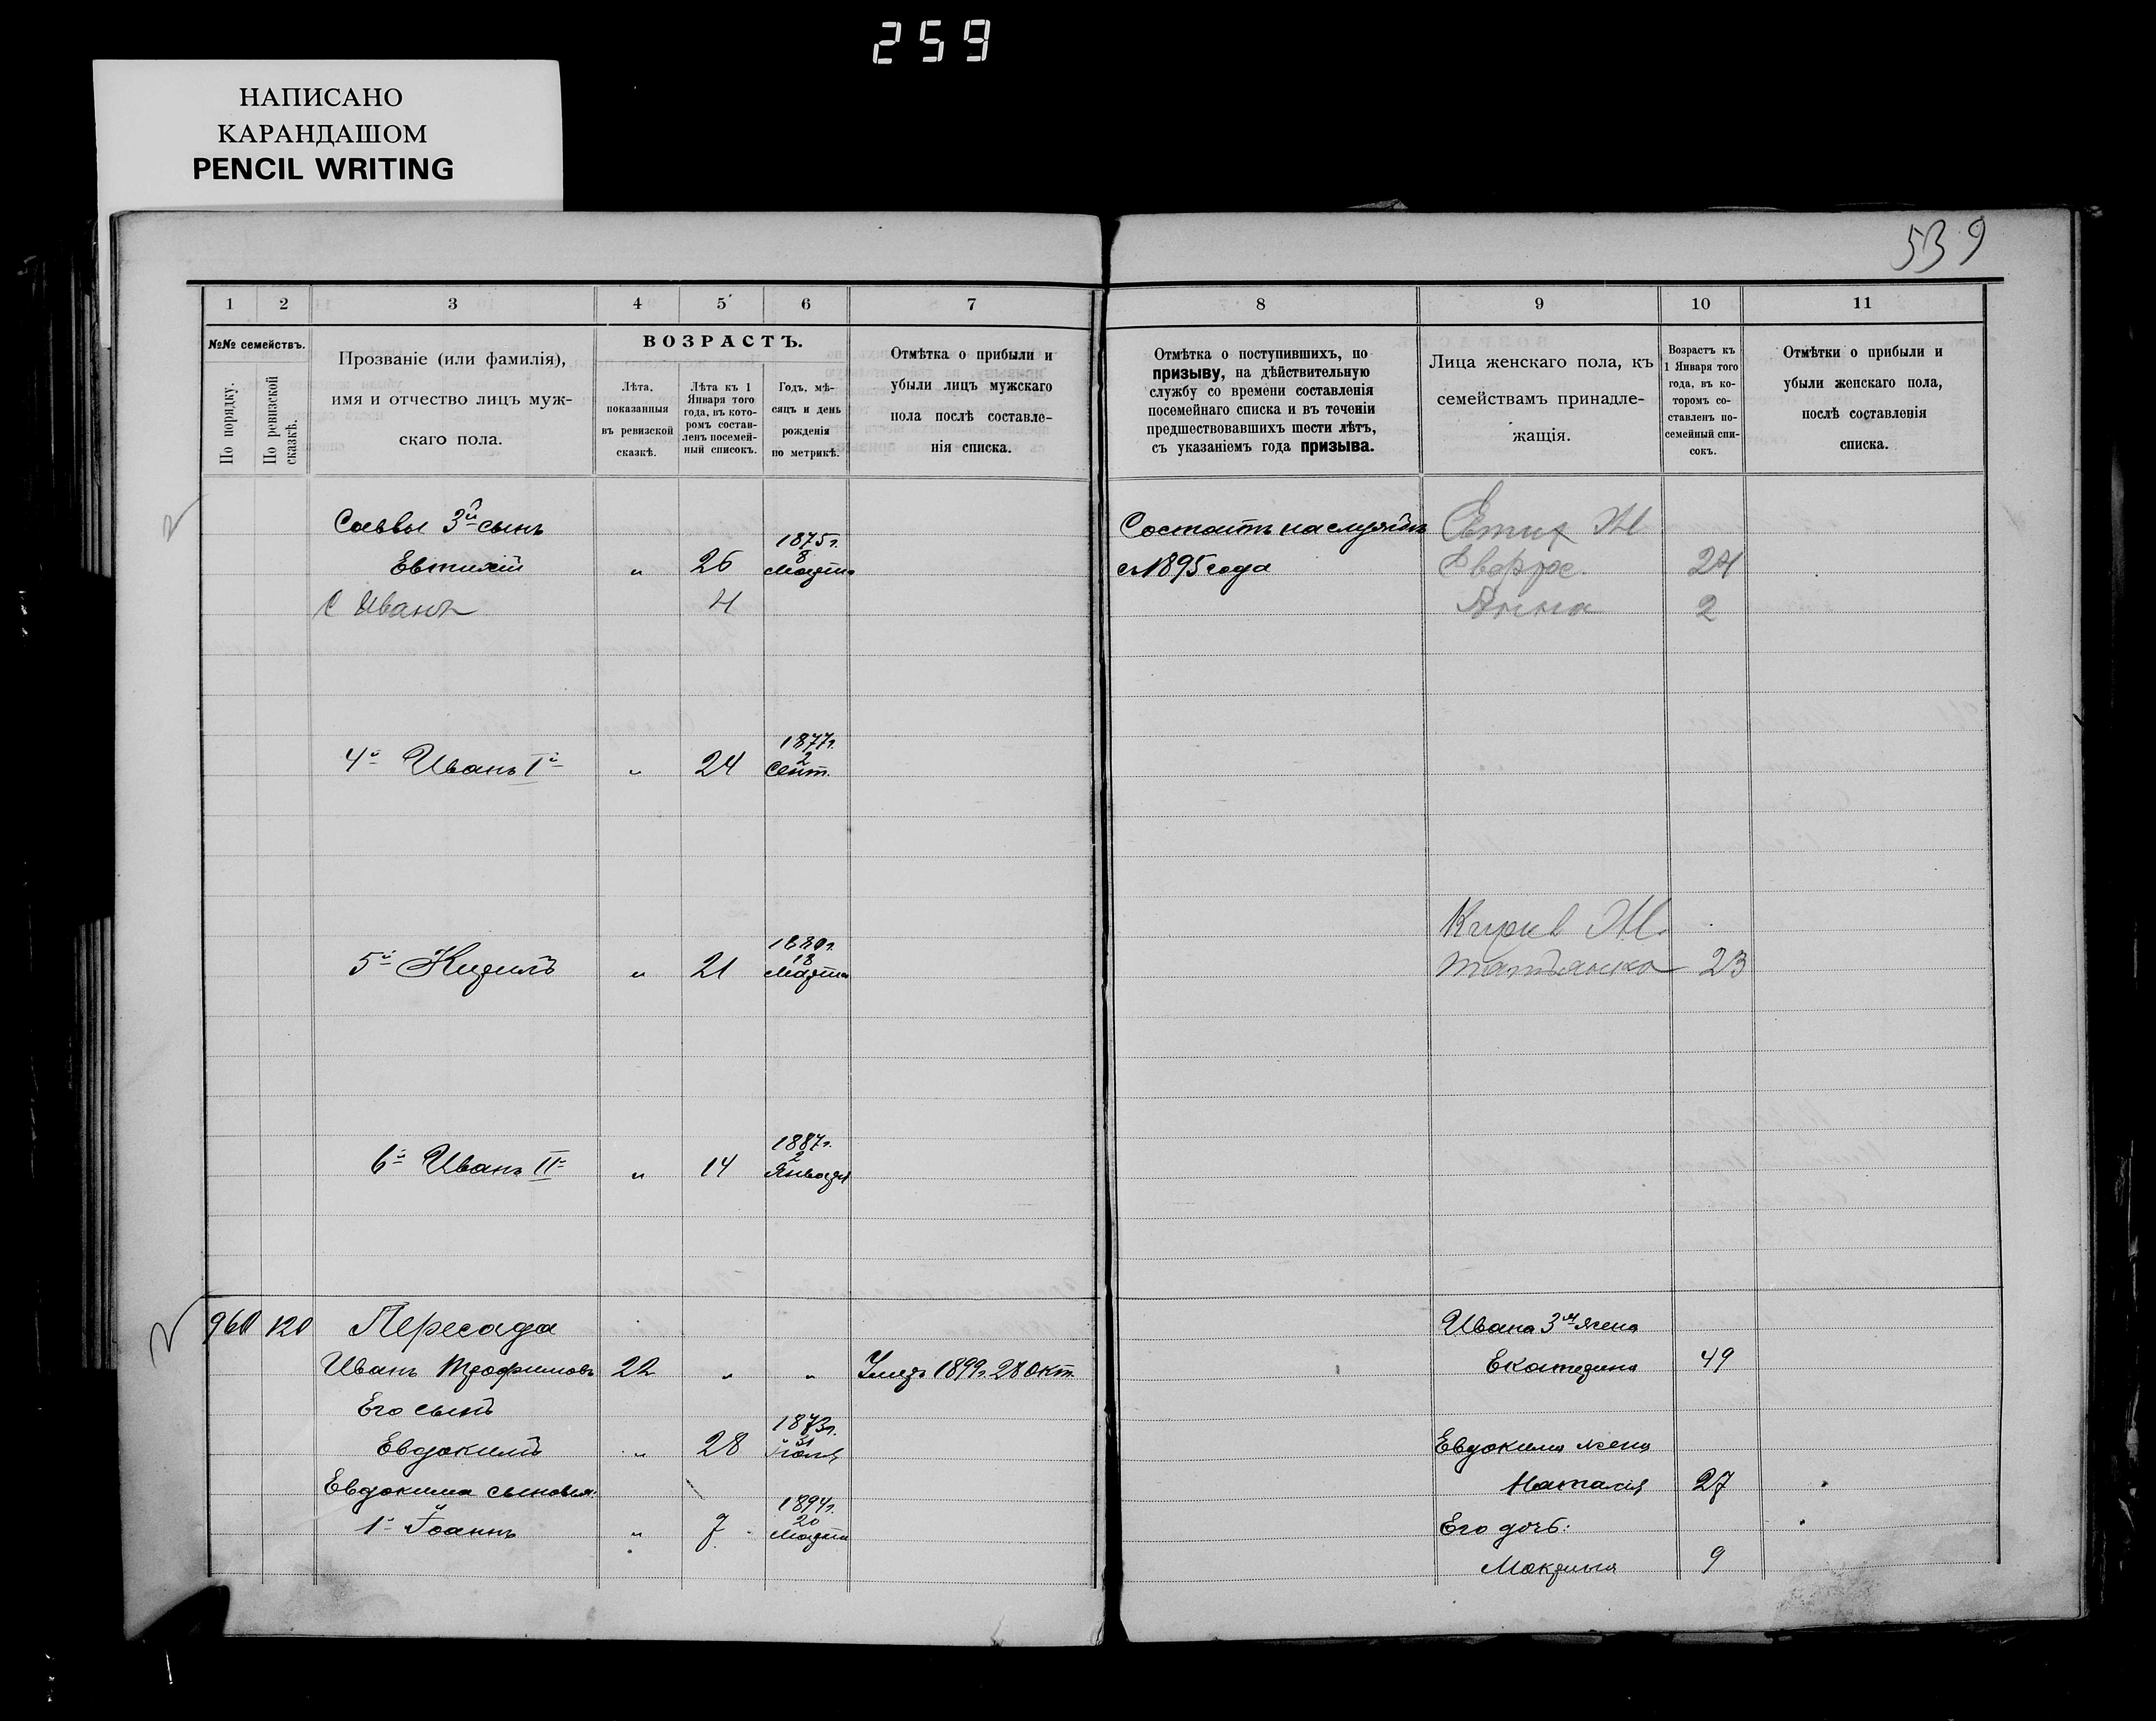 259
НАПИСАНО
КАРАНДАШОМ
PENCIL WRITING
539
1 2 3 4 5 6 7 8 9 10 11
№№ семействъ.
По порядку.
По ревизской сказкѣ.
Прозваніе (или фамилія),
имя и отчество лицъ муж-
скаго пола.
ВОЗРАСТЪ.
Лѣта,
показанныя
въ ревизской
сказкѣ.
Лѣта къ 1
Января того
года, въ кото-
ромъ состав-
ленъ посемей-
ный списокъ.
Годъ, мѣ-
сяцъ и день
рожденія
по метрикѣ.
Отмѣтка о прибыли и
убыли лицъ мужскаго
пола послѣ составле-
нія списка.
Отмѣтка о поступившихъ, по
призыву, на дѣйствительную
службу со времени составленія
посемейнаго списка и въ теченіи
предшествовавшихъ шести лѣтъ,
съ указаніемъ года призыва.
Лица женскаго пола, къ
семействамъ принадле-
жащія.
Возрастъ къ
1 Января того
года, въ ко-
торомъ со-
ставленъ по-
семейный спи-
сокъ.
Отмѣтки о прибыли и
убыли женскаго пола,
послѣ составленія
списка.
Саввы 3й сынъ 1875г. Состоитъ на службѣ Ж
Евтихій " 26 8 Марта съ 1895 года Евфрос. 24
С Иванъ 4 Анна 2
4й Иванъ Iй " 24 1877г. 2 Сент.
Кирил Ж.
5й Кирилъ " 21 1880г. 18 Марта Татьянка 23
6й Иванъ IIй " 14 1887г. 2 Января
960 120 Пересада Ивана 3я жена
Иванъ Трофимовъ 22 " " Умеръ 1899г. 28 Окт. Екатерина 49
Его сынъ
Евдокимъ " 28 1873г. 31 Іюля Евдокима жена
Евдокима сыновья: Наталія 27
1й Іоаннъ " 7 1894г. 20 Марта Его дочь:
Макрина 9